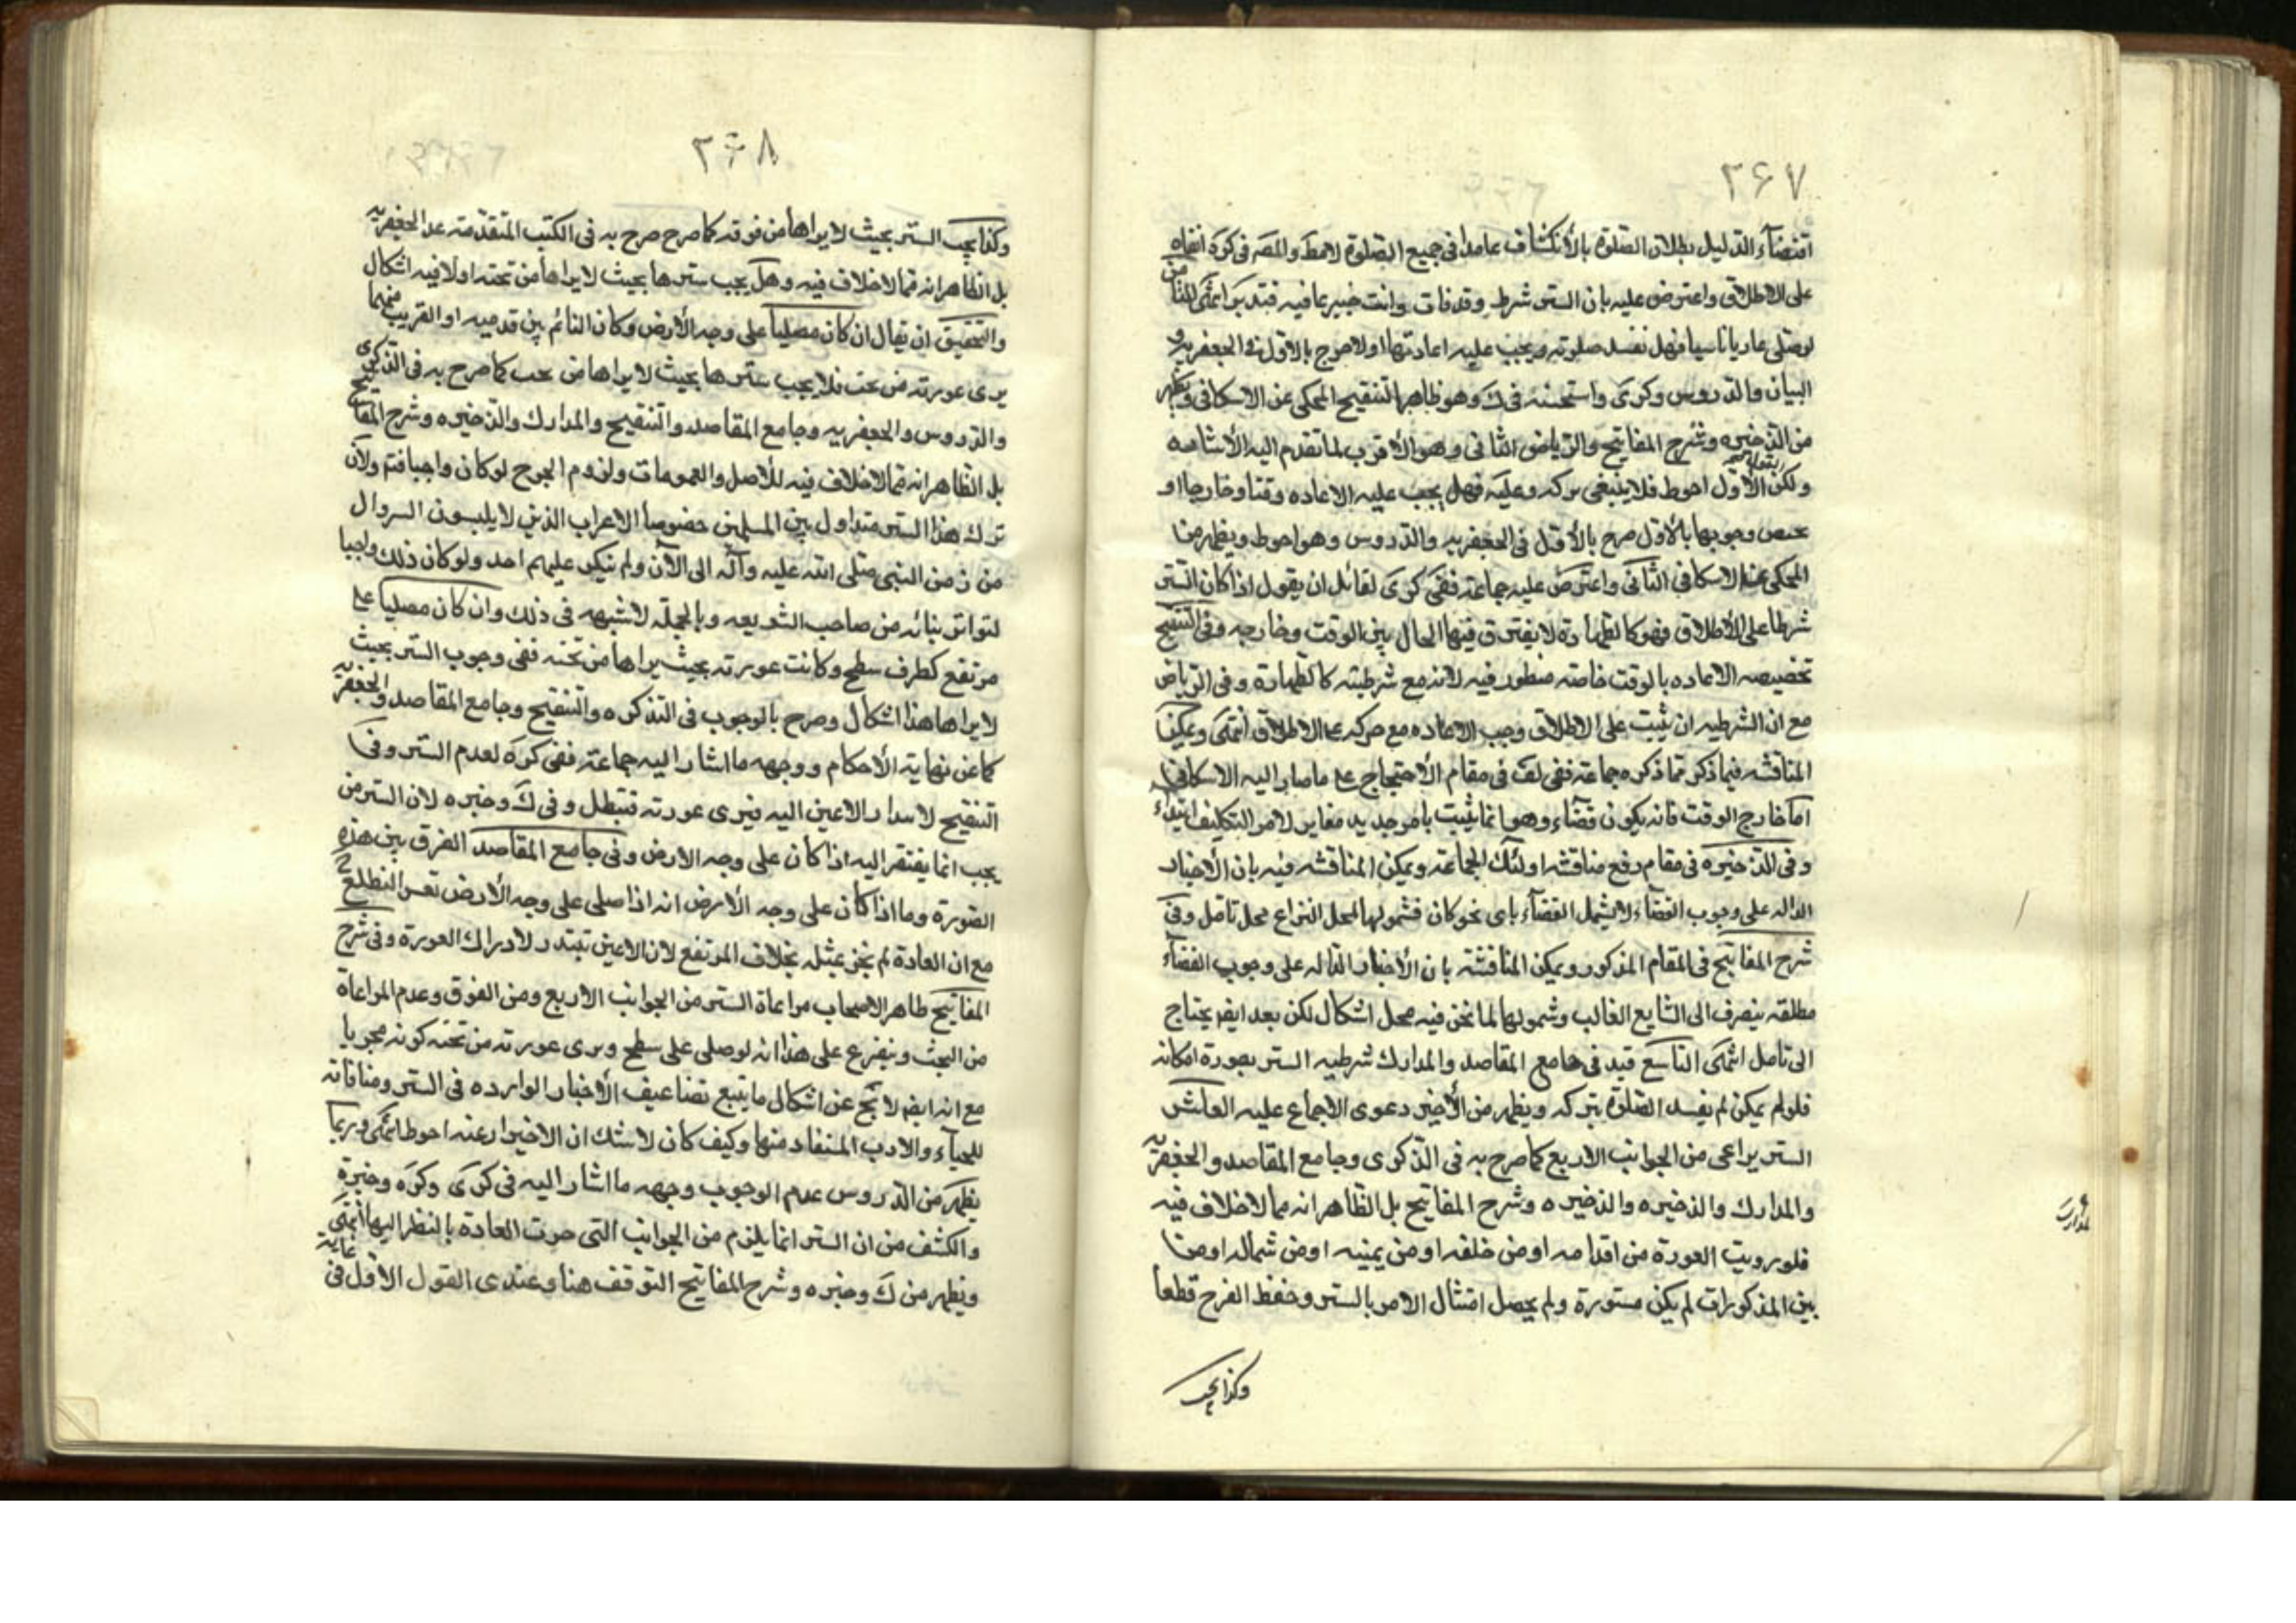 ۲۶۷
اقتضاء الدليل بطلان الصلوة بالأنكشاف عامدا فى جميع الصلوة لامط والمصَ فى كره
على الاطلاق واعترض عليه بان الستر شرط وقد فات وانت خبير بما فيه فتدبر انتهى الثامن
لو صلى عاريا ناسيا فهل تفسد صلوته ويجب عليه اعادتها اولا صرح بالاول فى الجعفريه و
البيان والدروس وكرى واستحسنه فى ك وهو ظاهر التنقيح المحكى عن الاسكافى ويظهر
من الذخيره وشرح المفاتيح والرياض الثانى وهو الأقرب لما تقدم اليه الأشاره
ولكن الأول احوط فلا ينبغى تركه وعليه فهل يجب عليه الاعاده وقتا وخارجا او
يختص وجوبها بالاول صرح بالأول فى الجعفريه والدروس وهو احوط ويظهر من
المحكى عن الاسكافى الثانى واعترض عليه جماعة ففى كرى لقائل ان يقول اذا كان الستر
شرطا على الأطلاق فهو كالطهارة لا يفترق فيها الحال بين الوقت وخارجه وفى التنقيح
تخصيصه الاعاده بالوقت خاصة منظور فيه لانه مع شرطيته كالطهارة وفى الرياض
مع ان الشرطيه ان ثبت على الاطلاق وجب الاعاده مع تركه على الاطلاق انتهى ويمكن
المناقشه فيما ذكر بما ذكره جماعة ففى لف فى مقام الأحتجاج على ما صار اليه الاسكافى
اما خارج الوقت فانه يكون قضاء وهو انما يثبت بامر جديد مغاير لامر التكليف ابتداء
وفى الذخيره فى مقام دفع مناقشه اولئك الجماعة ويمكن المناقشه فيه بان الأخبار
الداله على وجوب القضاء لا يشمل القضاء باى نحو كان فشمولها لمحل النزاع محل تامل وفى
شرح المفاتيح فى المقام المذكور ويمكن المناقشة بان الأخبار الداله على وجوب القضاء
مطلقه ينصرف الى الشايع الغالب وشمولها لما نحن فيه محل اشكال لكن بعد ايضا يحتاج
الى تامل انتهى التاسع قيد فى جامع المقاصد والمدارك شرطيه الستر بصورة امكانه
فلو لم يمكن لم يفسد الصلوة بتركه ويظهر من الأخير دعوى الاجماع عليه العاشر
الستر يراعى من الجوانب الاربع كما صرح به فى الذكرى وجامع المقاصد والجعفريه
والمدارك والذخيره والذخيره وشرح المفاتيح بل الظاهر انه مما لا خلاف فيه
فلو رويت العورة من اقدامه او من خلفه او من يمينه او من شماله او من
بين المذكورات لم يكن مستورة ولم يحصل امتثال الامر بالستر وحفظ الفرج قطعا
وكذا يجب
۲۶۸
وكذا يجب الستر بحيث لا يراها من فوقه كما صرح صرح به فى الكتب المتقدمة عدا الجعفريه
بل الظاهر انه مما لا خلاف فيه وهل يجب سترها بحيث لا يراها من تحته اولا فيه اشكال
والتحقيق ان يقال ان كان مصليا على وجه الأرض وكان النائم بين قدميه او القريب منهما
يرى عورته من تحت فلا يجب سترها بحيث لا يراها من تحت كما صرح به فى الذكرى
والدروس والجعفريه وجامع المقاصد والتنقيح والمدارك والذخيره وشرح المفاتيح
بل الظاهر انه مما لا خلاف فيه للأصل والعمومات ولزوم الحرج لو كان واجبا فتم ولأن
ترك هذا الستر متداول بين المسلمين خصوصا الاعراب الذين لا يلبسون السروال
من زمن النبى صلى الله عليه وآله الى الآن ولم ينكر عليهم احد ولو كان ذلك واجبا
لتواتر بنائه من صاحب الشريعه وبالجمله لا شبهه فى ذلك وان كان مصليا على
مرتفع كطرف سطح وكانت عورته بحيث يراها من تحته ففى وجوب الستر بحيث
لا يراها هذا اشكال وصرح بالوجوب فى التذكره والتنقيح وجامع المقاصد والجعفريه
كما عن نهاية الأحكام ووجهه ما اشار اليه جماعة ففى كره لعدم الستر وفى
التنقيح لابتدار الاعين اليه فيرى عورته فتبطل وفى ك وخيره لان الستر من
يجب انما يفتقر اليه اذا كان على وجه الارض وفى جامع المقاصد الفرق بين هذه
الصورة وما اذا كان على وجه الأرض انه اذا صلى على وجه الأرض تعسر التطلع ح
مع ان العادة لم تجر بمثله بخلاف المرتفع لان الاعين تبتدر لادراك العورة وفى شرح
المفاتيح ظاهر الاصحاب مراعاة الستر من الجوانب الاربع ومن الفوق وعدم المراعاة
من التحت ويتفرع على هذا انه لو صلى على سطح ويرى عورته من تحته كونه مجزيا
مع انه ايضا لا يخ عن اشكال ما يتبع تضاعيف الأخبار الوارده فى الستر ومنافاته
للحياء والادب المستفاد منها وكيف كان لا شك ان الاحتراز عنه احوط انتهى وربما
يظهر من الدروس عدم الوجوب ووجهه ما اشار اليه فى كرى وكره وخيره
والكشف من ان الستر انما يلزم من الجوانب التى جرت العادة بالنظر اليها انتهى
ويظهر من ك وخيره وشرح المفاتيح التوقف هنا وعندى القول الاول فى غاية